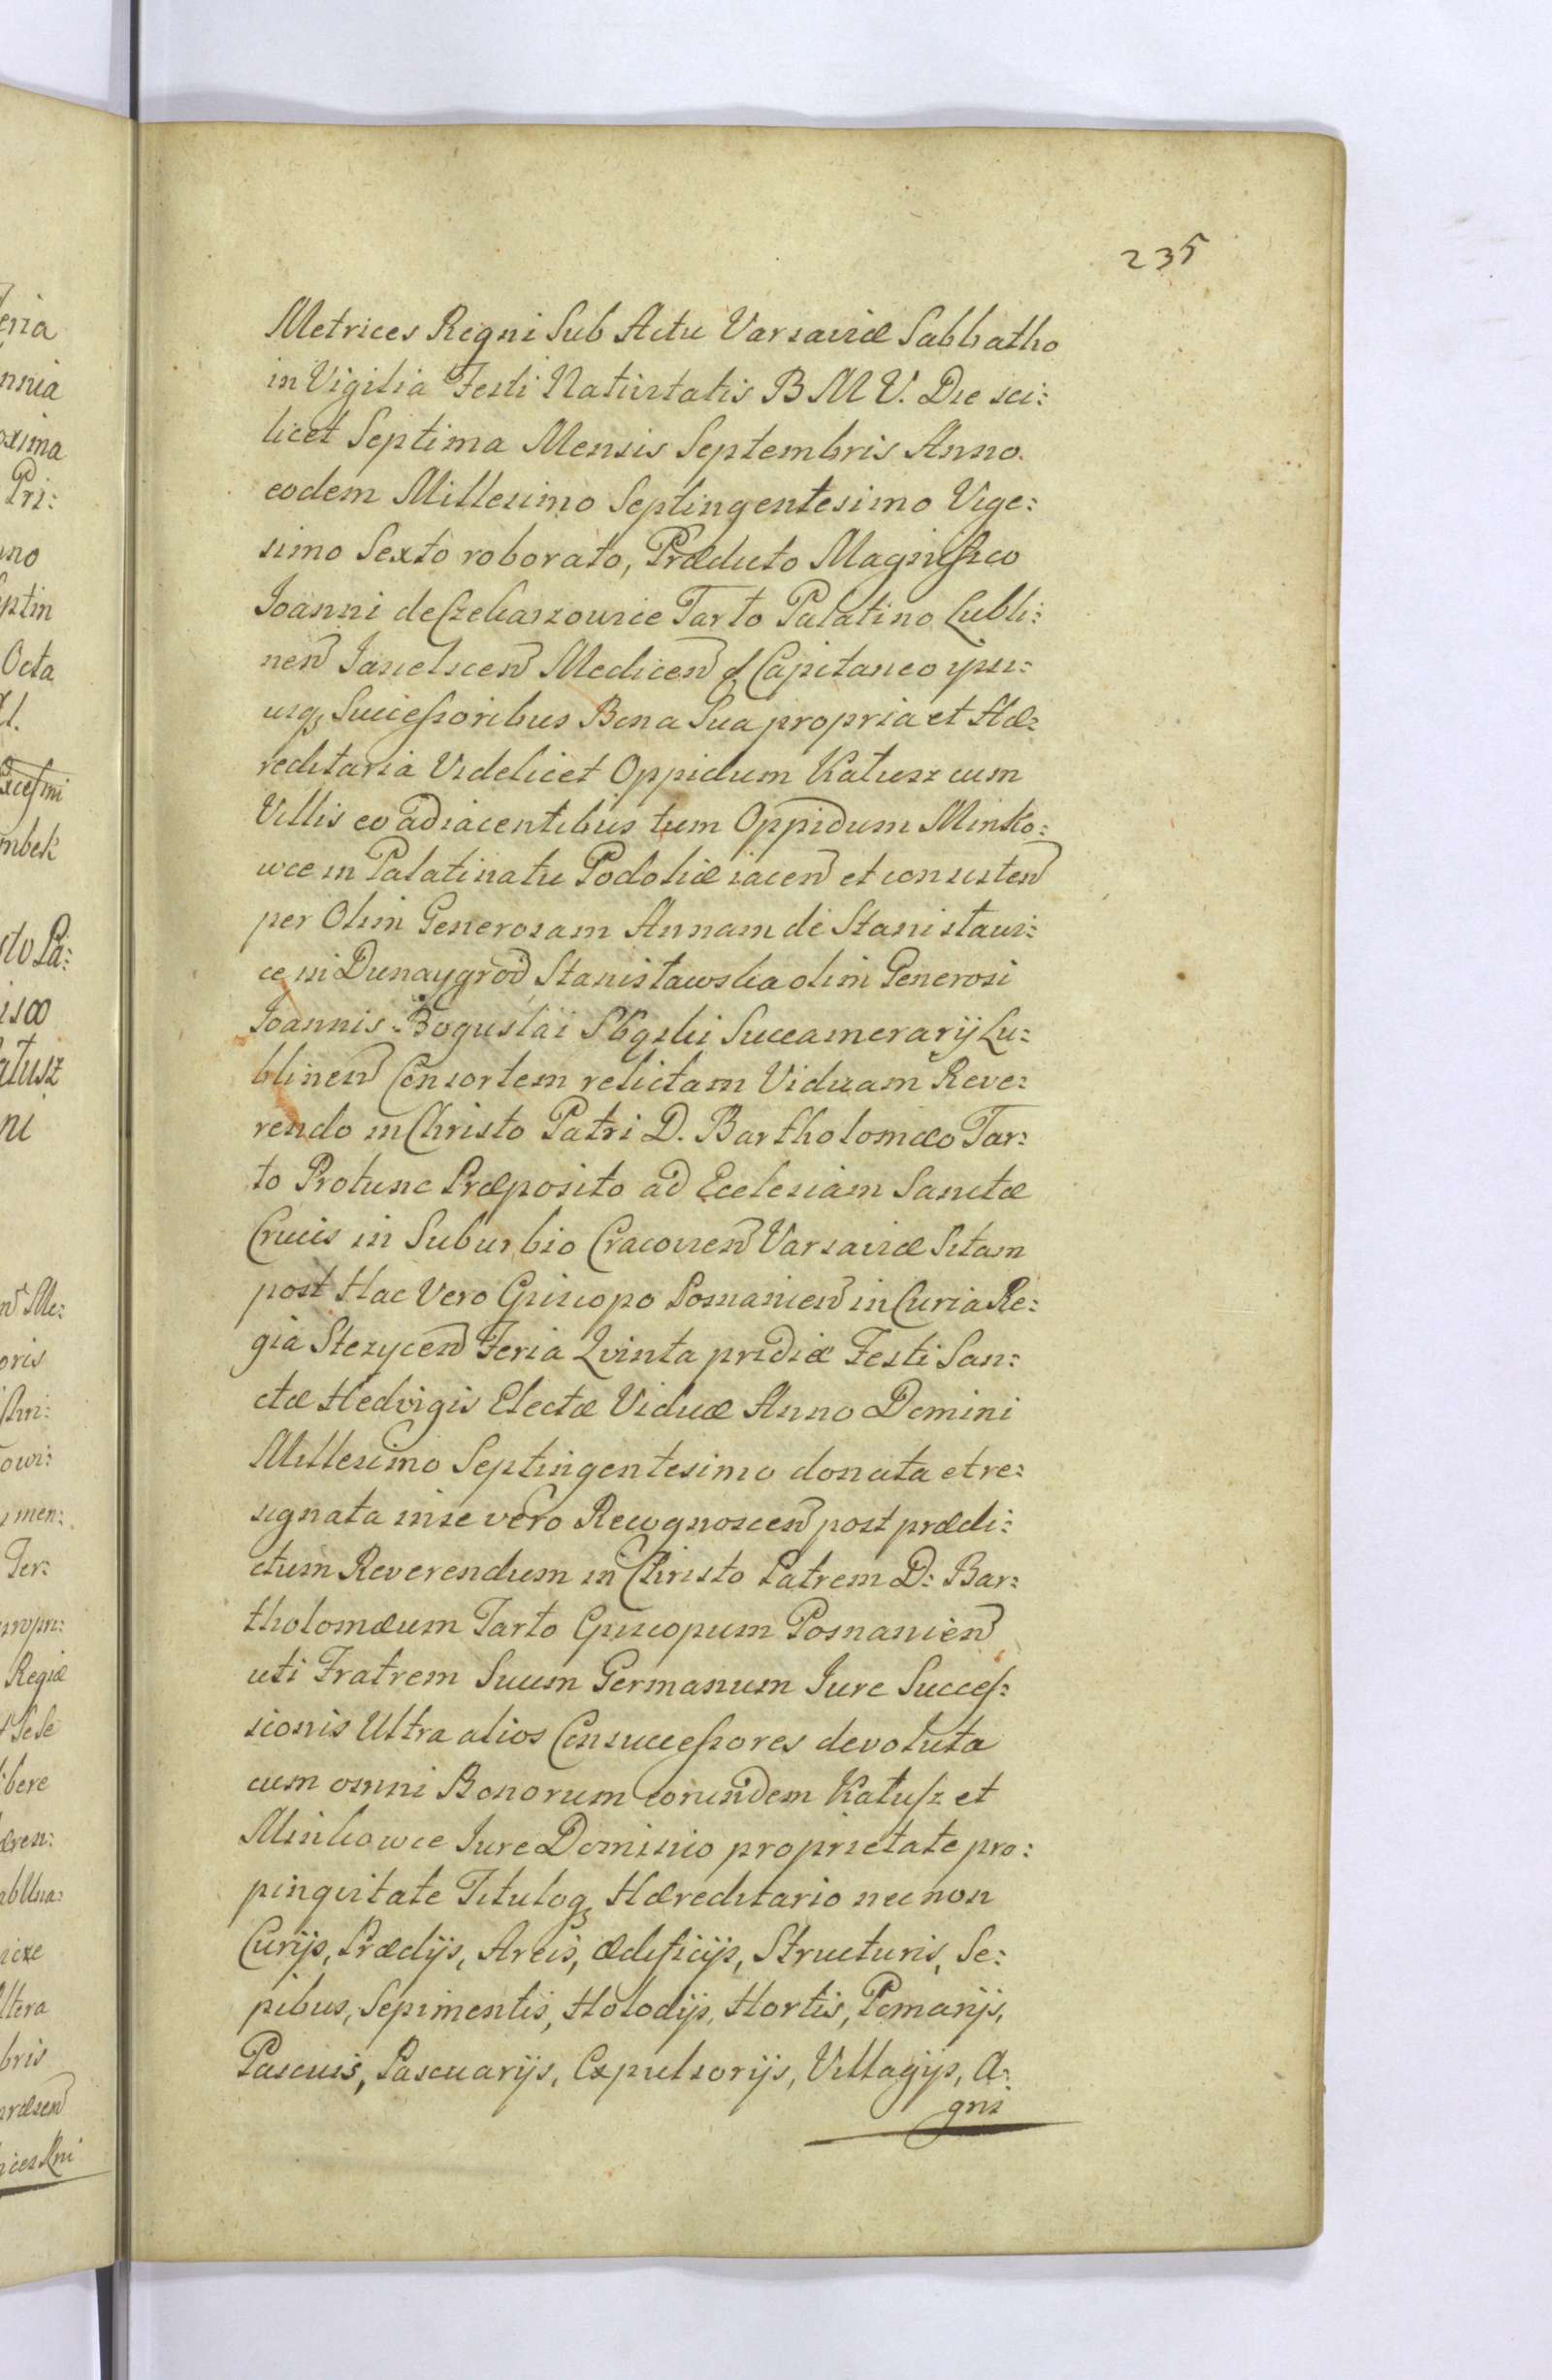 235
Metrices Regni Sub Actu Varsaviæ Sabbatho
in Vigilia Festi Nativitatis B M V. Die sci:
licet Septima Mensis Septembris Anno
eodem Millesimo Septingentesimo Vige:
simo Sexto roborato, Prædicto Magnifico
Joanni de Czekarzowice Tarło Palatino Lubli:
nen Medicen Capitaneo ipsi:
usq, Successoribus Bona Sua propria et Hæ:
reditaria Videlicet Oppidum Katusz cum
Villis eo adiacentibus tum Oppidum Minko:
wce in Palatinatu Podoliæ iacen et consisten
per Olim Generosam Annam de Stanisławi:
ce in Dunaygrod Stanisławska olim Generosi
Joannis Bogusłai Succamerarij Lu:
blinen Consortem relictam Viduam Reve:
rendo in Christo Patri D. Bartholomæo Tar:
ło Protunc Præposito ad Ecclesiam Sanctæ
Crucis in Suburbio Cracovien Varsaviæ Sitam
post Hac Vero Episcopo Posnanien in Curia Re:
gia Stezycen Feria Qvinta pridie Festi San:
ctæ Hedvigis Electæ Viduæ Anno Domini
Millesimo Septingentesimo donata et re:
signata in se vero Recognoscen post prædi:
ctum Reverendum in Christo Patrem D: Bar:
tholomæum Tarło Episcopum Posnanien
uti Fratrem Suum Germanum Jure Succes:
sionis Ultra alios Consuccessores devoluta
cum omni Bonorum eorundem Katusz et
Minkowce Jure Dominio proprietate pro:
pinqvitate Tituloq, Hæreditario nec non
Curijs, Prædijs, Areis, ædificijs, Structuris, Se:
pibus, Sepimentis, Holodijs, Hortis, Pomarijs,
Pascuis, Pascuarijs, Expulsorijs, Villagijs, A:
gris